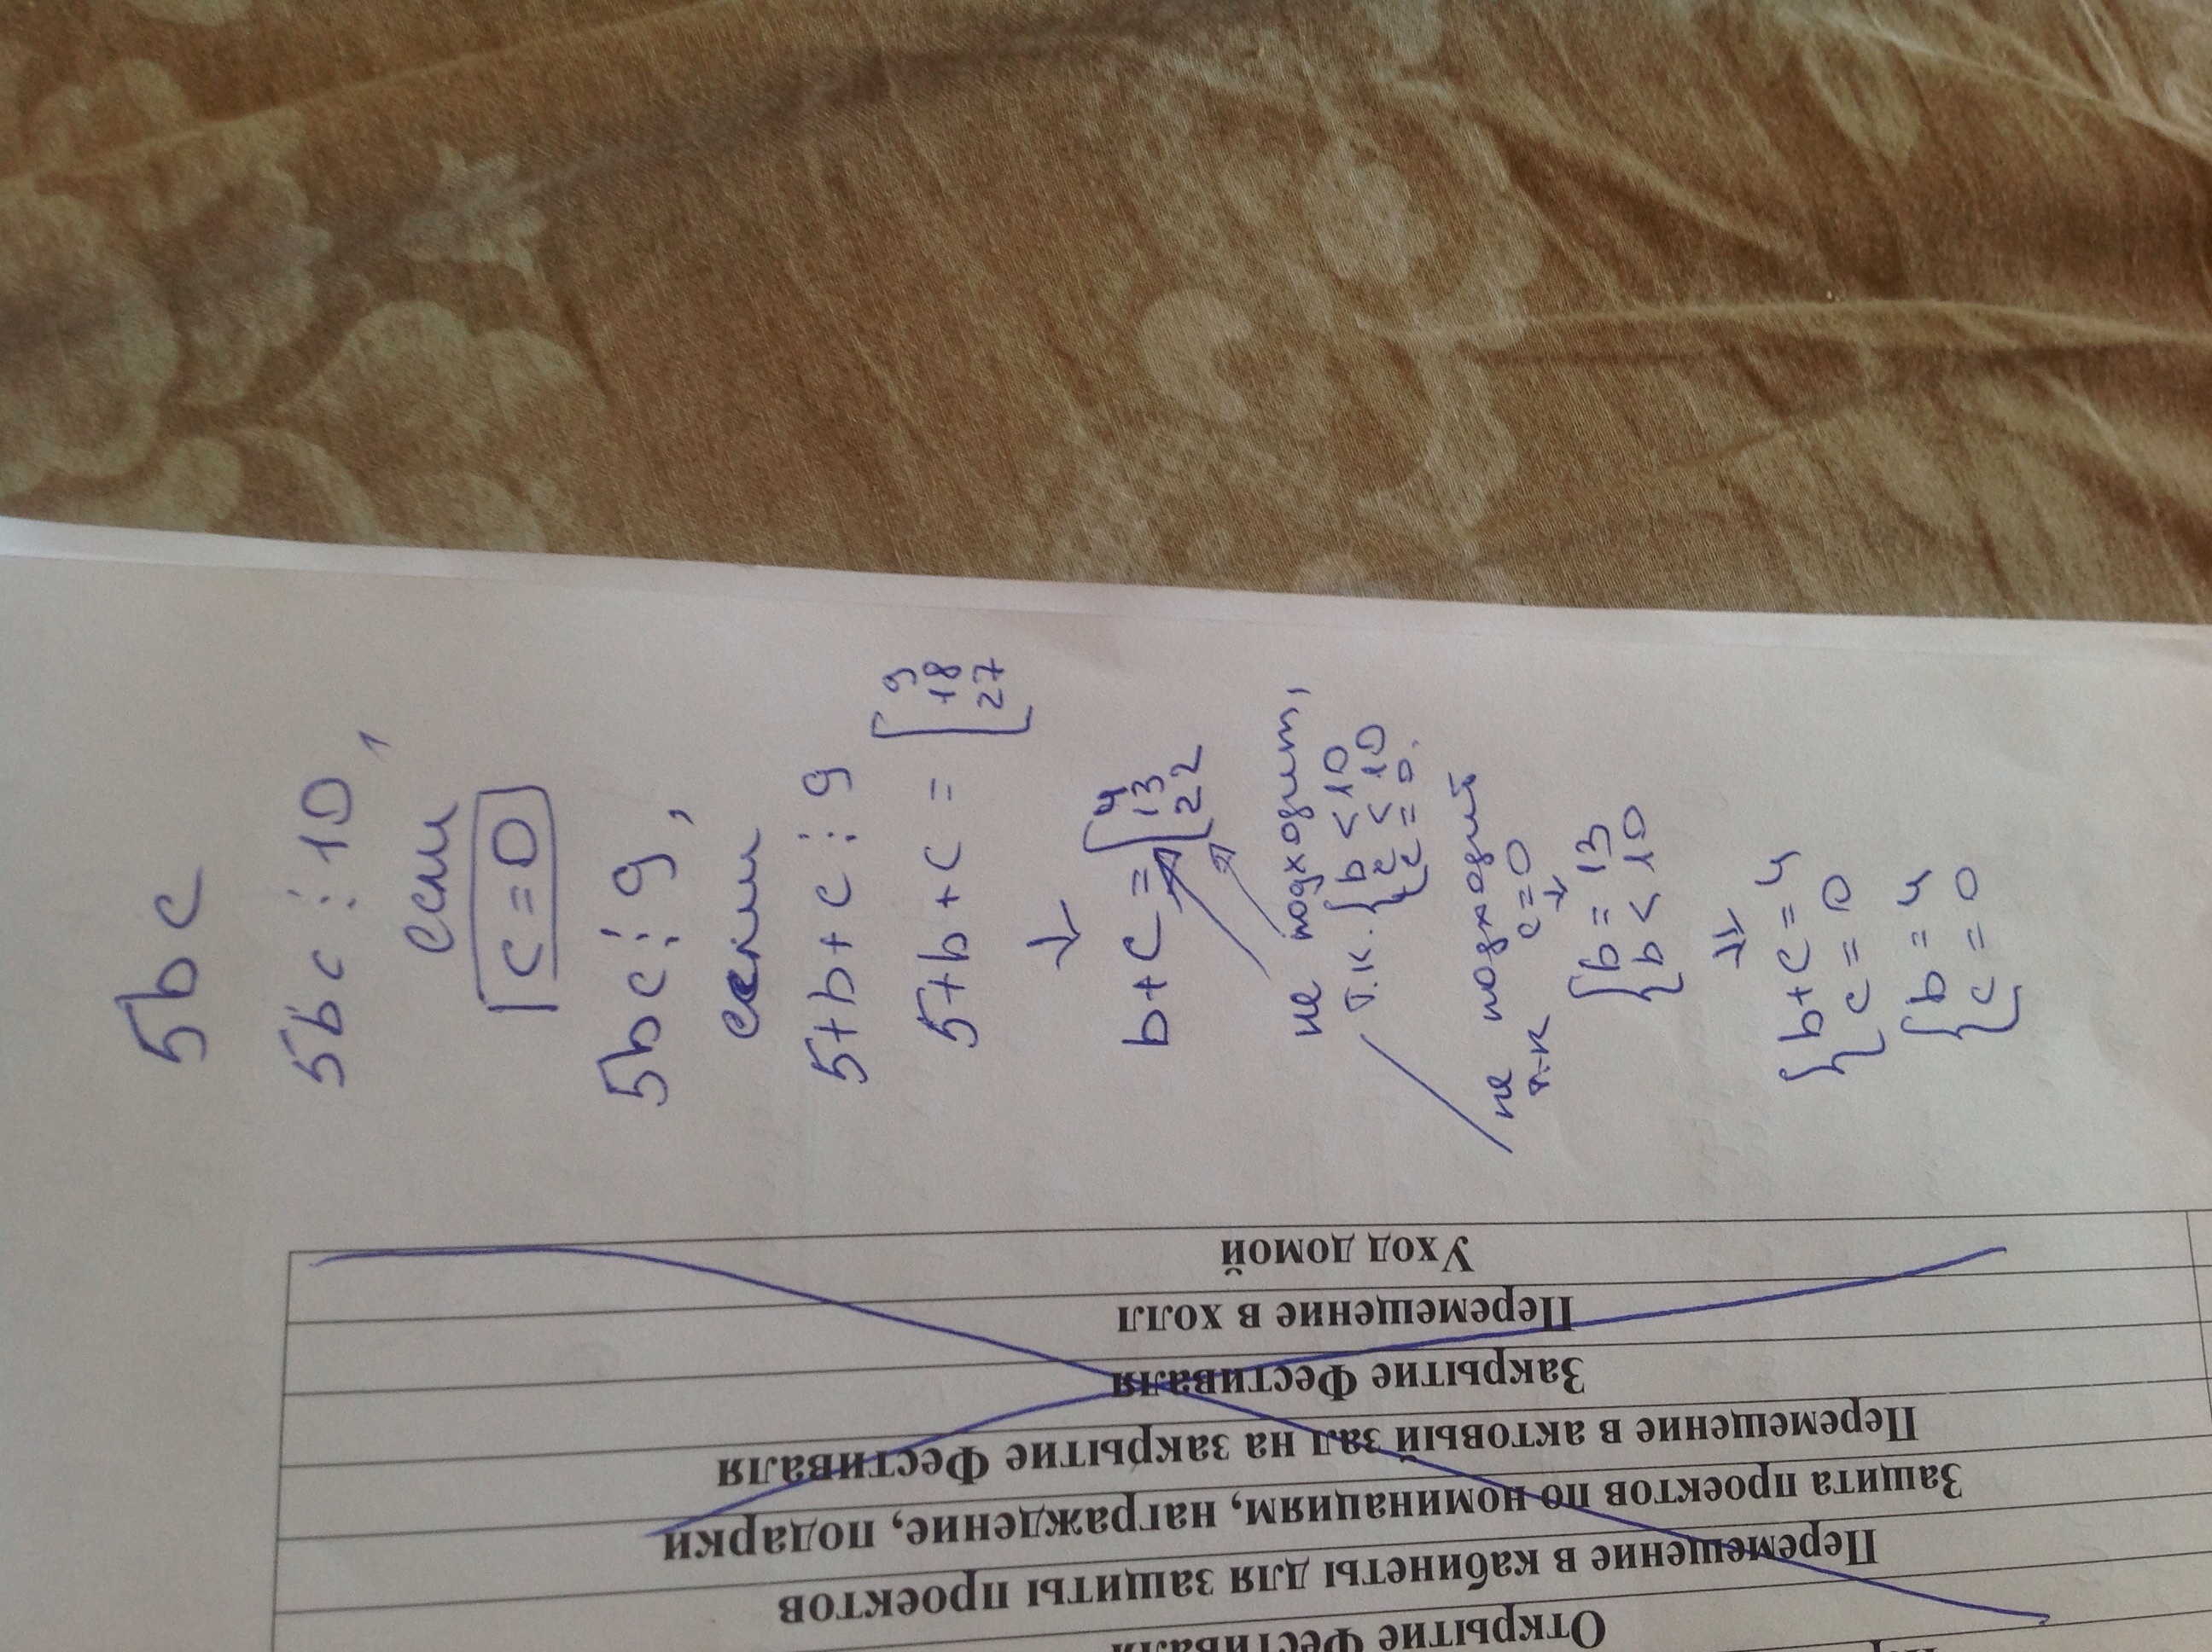 5bc
5bc ⋮ 10,
если
c = 0
5bc ⋮ 9,
если
5+b+c ⋮ 9
5+b+c = [9
18
27
↓
b+c = [4
13
22
не подходит,
т.к. {b < 10
c < 10
c = 0.
не подходит
т.к c=0
↓
{b = 13
b < 10
⇓
{b+c=4
c = 0
{b = 4
c = 0
Открытие Фестиваля
Перемещение в кабинеты для защиты проектов
Защита проектов по номинациям, награждение, подарки
Перемещение в актовый зал на закрытие Фестиваля
Закрытие Фестиваля
Перемещение в холл
Уход домой